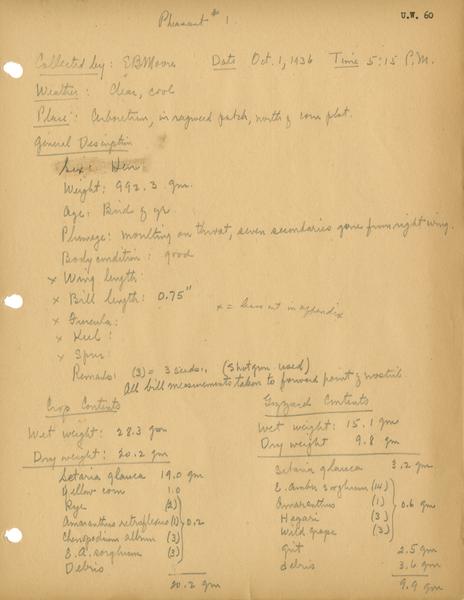 Pheasant # 1.
U.W. 60
Collected by: E B Moore Date Oct. 1, 1936 Time 5:15 P.M.
Weather: Clear, cool
Place: Arboretum, in ragweed patch, north of corn plot.
General Description
Sex: Hen
Weight: 992.3 gm.
Age: Bird of yr.
Plumage: moulting on throat, seven secondaries gone from right wing.
Body condition: good
x Wing length:
x Bill length: 0.75"
x = in appendix
x Furcula:
x Keel:
x Spur:
Remarks: (3) = 3 seeds. (Shotgun used)
All bill measurements taken to forward point of nostril.
Crop Contents
Wet weight: 28.3 gm
Dry weight: 20.2 gm
Setaria glauca 19.0 gm
Yellow corn 1.0
Rye (2)
Amaranthus retroflexus (1) 0.2
Chenopodium album (3)
E.A. sorghum (3)
Debris
20.2 gm
Gizzard Contents
Wet weight: 15.1 gm
Dry weight 9.8 gm
Setaria glauca 3.2 gm
E. Amber sorghum (14)
Amaranthus (1) 0.6 gm
Hegari (3)
Wild grape (3)
Grit 2.5 gm
debris 3.6 gm
9.9 gm